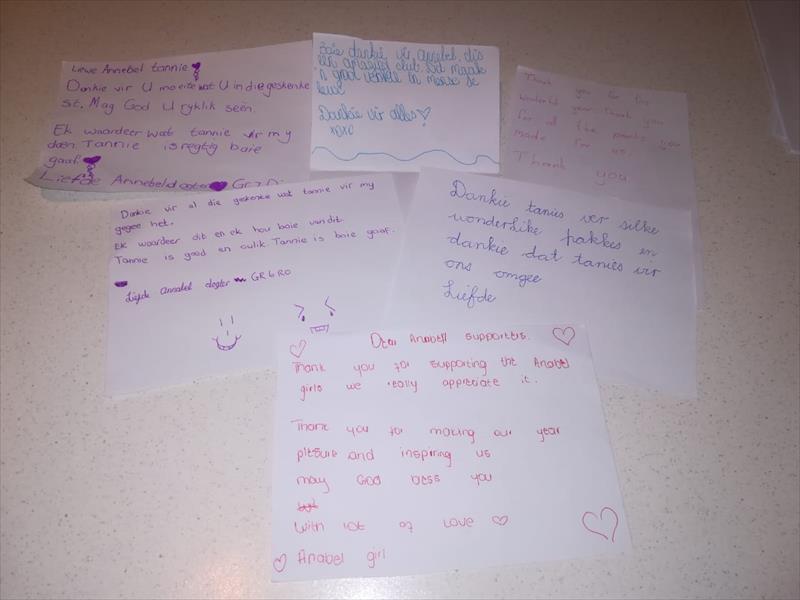 Liewe Annebel tannie
Dankie vir U moeite wat U in die geskenke
sit. Mag God U ryklik seën.
Ek waardeer wat tannie vir my
doen. Tannie is regtig baie
gaaf.
Liefde Annebeldogter Gr7
Baie dankie vir annabel. dis
'n amazing club. Dit maak
'n groot verskil in mense se
lewe
Dankie vir alles
xoxo
Thank you for this
wonderful year. Thank you
for all the you
made for us
Thank you
Dankie vir al die geskenke wat tannie vir my
gegee het.
Ek waardeer dit en ek hou baie van dit.
Tannie is goed en oulik. Tannie is baie gaaf.
Liefde annabel dogter GR6RO
Dankie tanies ver sulke
wonderlike pakkes en
dankie dat tanies vir
ons omgee
Liefde
Dear Anabell supporters.
Thank you for supporting the Anabel
girls we really appreciate it.
Thank you for making our year
plesure and inspiring us
may God bless you
With lot of Love
Anabel girl